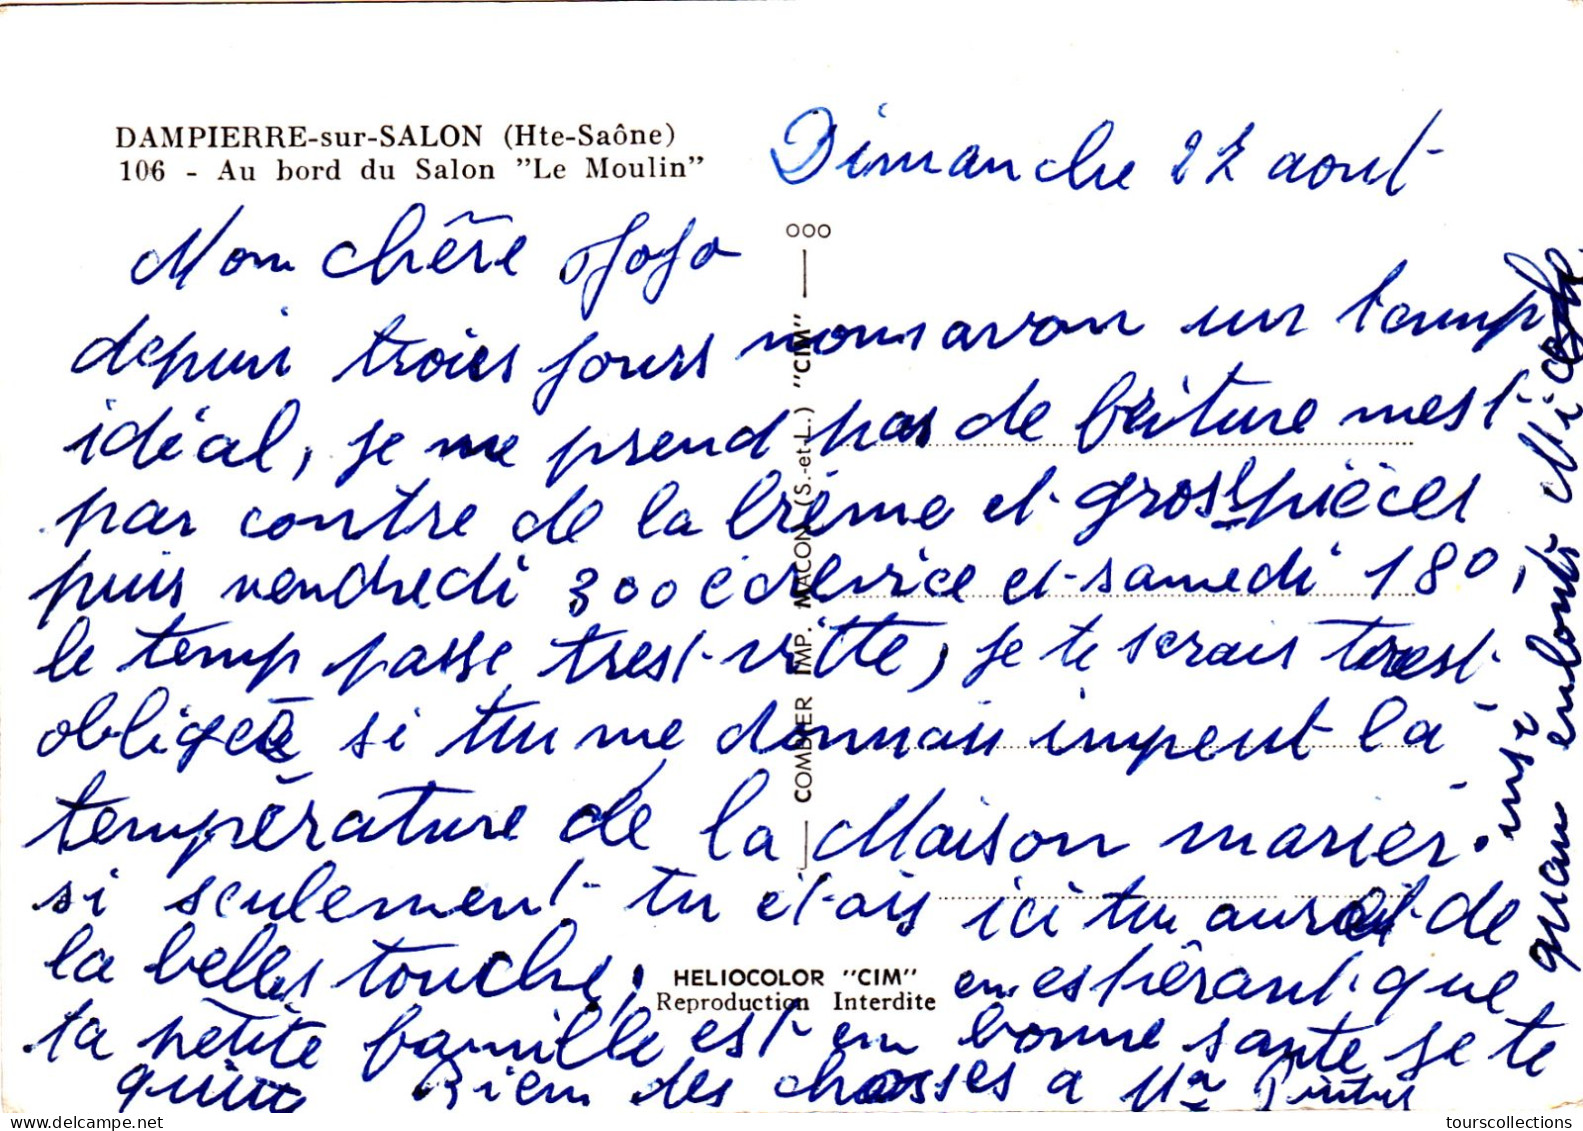 DAMPIERRE-sur-SALON (Hte-Saône)
106 - Au bord du Salon "Le Moulin"
Dimanche 22 aout
Mon chêre Jojo
depuis trois jours nous avon un temp
idéal, je me prend pas de friture mest
par contre de la brème et grosse pièces
puis vendredi 300 écrevice et samedi 180,
le temp passe trest vitte, je te serais trest
obligeé si tu me donnais impeut la
température de la Maison marier.
si seulement tu étais ici tu aurait de
la belles touche, en espêrant que
ta petite famille est en bonne sante je te
quitte Bien des chosses a
quan
ooo
COMBIER IMP. MACON (S.-et-L.) "CIM"
HELIOCOLOR "CIM"
Reproduction Interdite
tourscollections